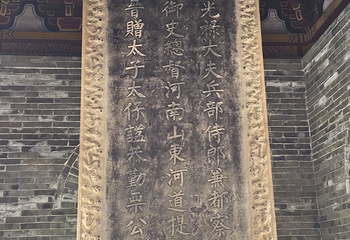 光祿大夫兵部侍郎兼都察
御史總督河南山東河道提
晉贈太子太保諡恭勤栗公